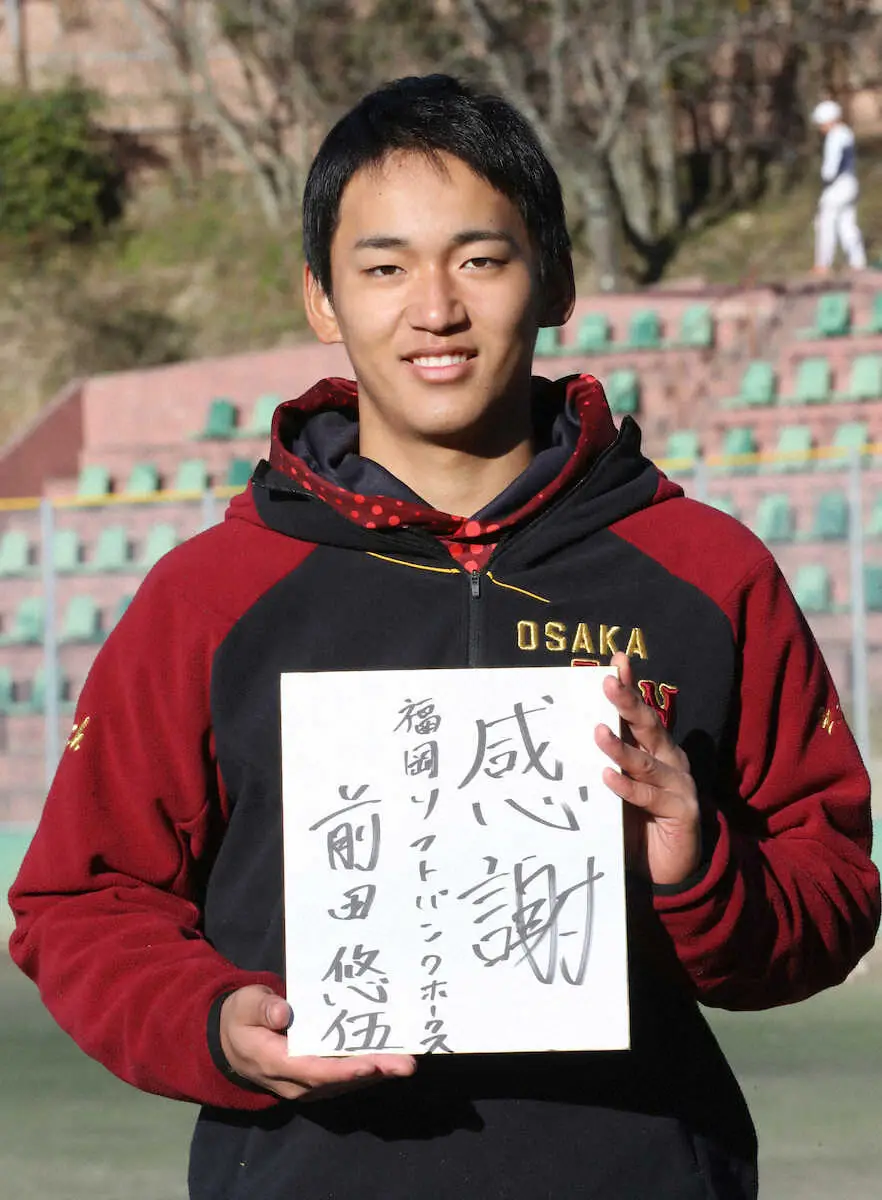 OSAKA
感謝
福岡ソフトバンクホークス
前田悠伍